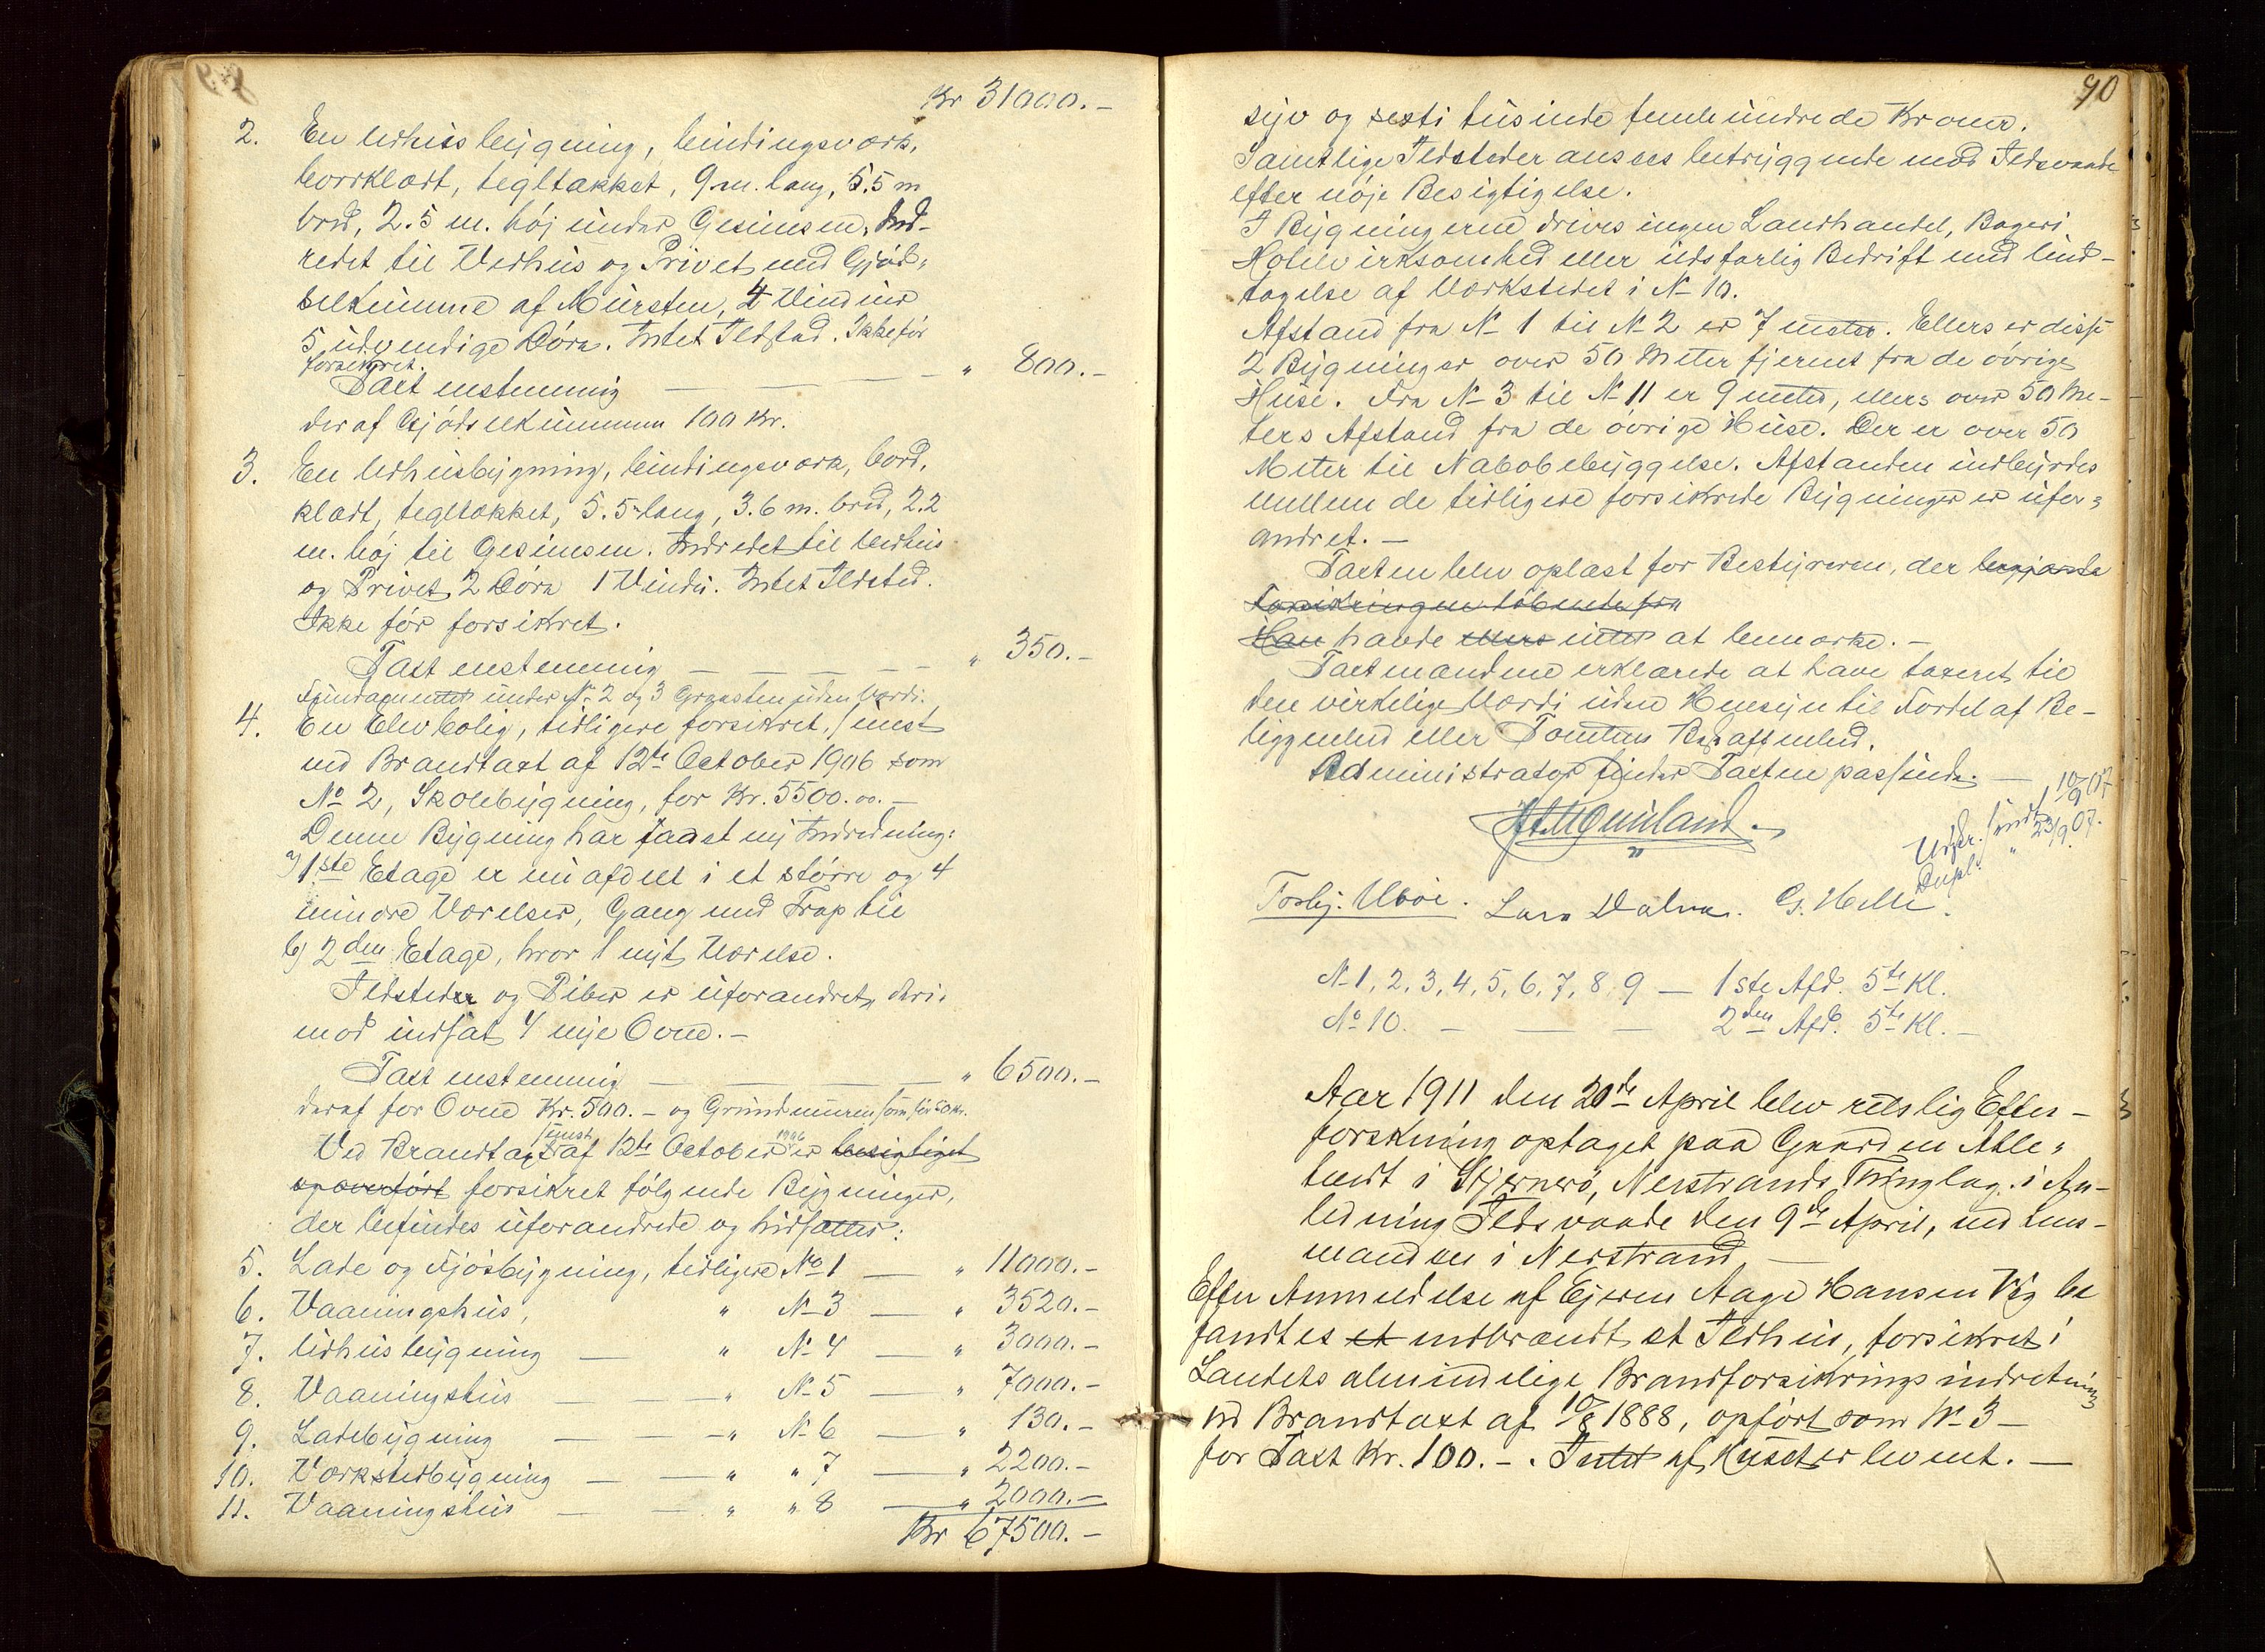 Kr 31000.-
2. En Udhusbygning, bindingsværk,
bordklædt, tegltækket, 9 m. lang, 5.5 m
bred, 2.5 m. høj under Gesimsen, Ind-
redet til Vedhus og Privet med Gjød-
selkumme af Mursten, 4 Vinduer
5 udvendige Døre. Intet Ildsted. Ikke før
forsikret.
Taxt enstemmig — — — " 800.-
deraf Gjødselkummen 100 Kr.
3. En Udhusbygning, bindingsværk, bord,
klædt, tegltækket, 5.5 lang, 3.6 m. bred, 2.2
m. høj til Gesimsen. Indredet til Vedhus
og Privet 2 Døre 1 Vindu. Intet Ildsted.
Ikke før forsikret.
Taxt enstemmig — — — — " 350.-
Fundamentet under No 2 og 3 Graasten uden Værdi.
4. En Elevbolig, tidligere forsikret, senest
ved Brandtaxt af 12te October 1906 som
No 2, Skolebygning, for Kr. 5500.00.-
Denne Bygning har faaet ny Indredning:
a) 1ste Etage er nu afdelt i et større og 4
mindre Værelser, Gang med Trap til
b) 2den Etage, hvor 1 nyt Værelse.
Ildsteder og Piber er uforandret, deri-
mod indsat 4 nye Ovne.-
Taxt enstemmig — — — " 6500.-
deraf for Ovne Kr. 500.- og Grundmuren som før 50 Kr.
Ved Brandtaxt senest af 12te October 1906 er besigtiget
og overført forsikret følgende Bygninger,
der befindes uforandrede og hidsættes:
5. Lade og Fjøsbygning, tidligere No 1 — " 11000.-
6. Vaaningshus, " No 3 — " 3520.-
7. Udhusbygning — " No 4 — " 3000.-
8. Vaaningshus — — " No 5 — " 7000.-
9. Ladebygning — — " No 6 — " 130.-
10. Værkstedbygning — — " " 7 — " 2200.-
11. Vaaningshus — — " " 8 — " 2000.-
Kr 67500.-
90
syv og sexti tusinde femhundrede Kroner.
Samtlige Ildsteder ansees betryggende mod Ildsvaade
efter nøje Besigtigelse.
I Bygningerne drives ingen Landhandel, Bageri
Hotelvirksomhed eller ildsfarlig Bedrift med Und-
tagelse af Værkstedet i No 10.
Afstand fra No 1 til No 2 er 7 meter. Ellers er disse
2 Bygninger over 50 Meter fjernet fra de øvrige
Huse. Fra No 3 til No 11 er 9 meter, ellers over 50 Me-
ters Afstand fra de øvrige Huse. Der er over 50
Meter til Nabobebyggelse. Afstanden indbyrdes
mellem de tidligere forsikrede Bygninger er ufor-
andret.-
Taxten blev oplæst for Bestyreren, der begjærte
Forsikringen løbende fra
Han havde ellers intet at bemærke.-
Taxtmændene erklærede at have taxeret til
den virkelige Værdi uden Hensyn til Fordel af Be-
liggenhed eller Tomtens Beskaffenhed.
Administrator finder Taxten passende.-
Udskr. sendt 10/9 07.
Dupl. " 23/9 07.
Torbj. Ubøe. Lars Dalva. G. Helle.
No 1, 2, 3, 4, 5, 6, 7, 8, 9 — 1ste Afd. 5te Kl.
No 10. — — — 2den Afd. 5te Kl.-
Aar 1911 den 20de April blev retslig Efter-
forskning optaget paa Gaarden
i Sjernerø, Nerstrands Thinglag i An-
ledning Ildsvaade den 9de April, ved Lens-
manden i Nerstrand —
Efter Anmeldelse af Ejeren Aage Hansen Vig be
fandtes et nedbrændt et Ildhus, forsikret i
Landets almindelige Brandforsikringsindretning
ved Brandtaxt af 10/8 1888, opført som No 3 —
for Taxt Kr. 100.-. Intet af Huset er levnet. —